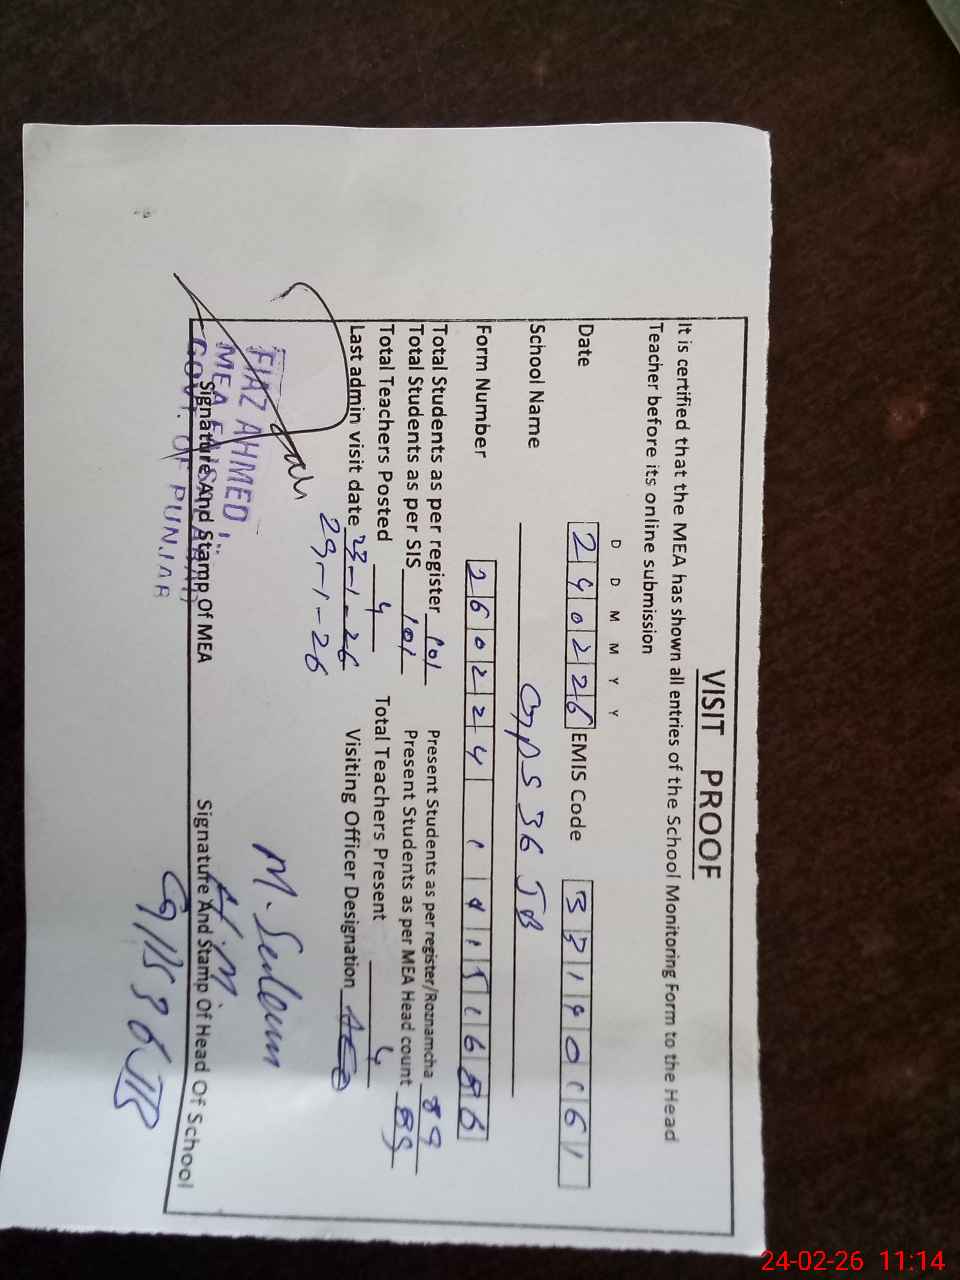 VISIT PROOF
It is certified that the MEA has shown all entries of the School Monitoring Form to the Head
Teacher before its online submission
D D M M Y Y
Date 240226 EMIS Code
School Name GPS 36 JB
Form Number 260224
Total Students as per register 101 Present Students as per register/Roznamcha 89
Total Students as per SIS 101 Present Students as per MEA Head count 89
Total Teachers Posted 4 Total Teachers Present 4
Last admin visit date -1-26 Visiting Officer Designation AEO
29-1-26
FIAZ AHMED
MEA
GOVT. OF PUNJAB
M. Saleem
H.M
GPS 36 JB
Signature And Stamp Of MEA Signature And Stamp Of Head Of School
24-02-26 11:14